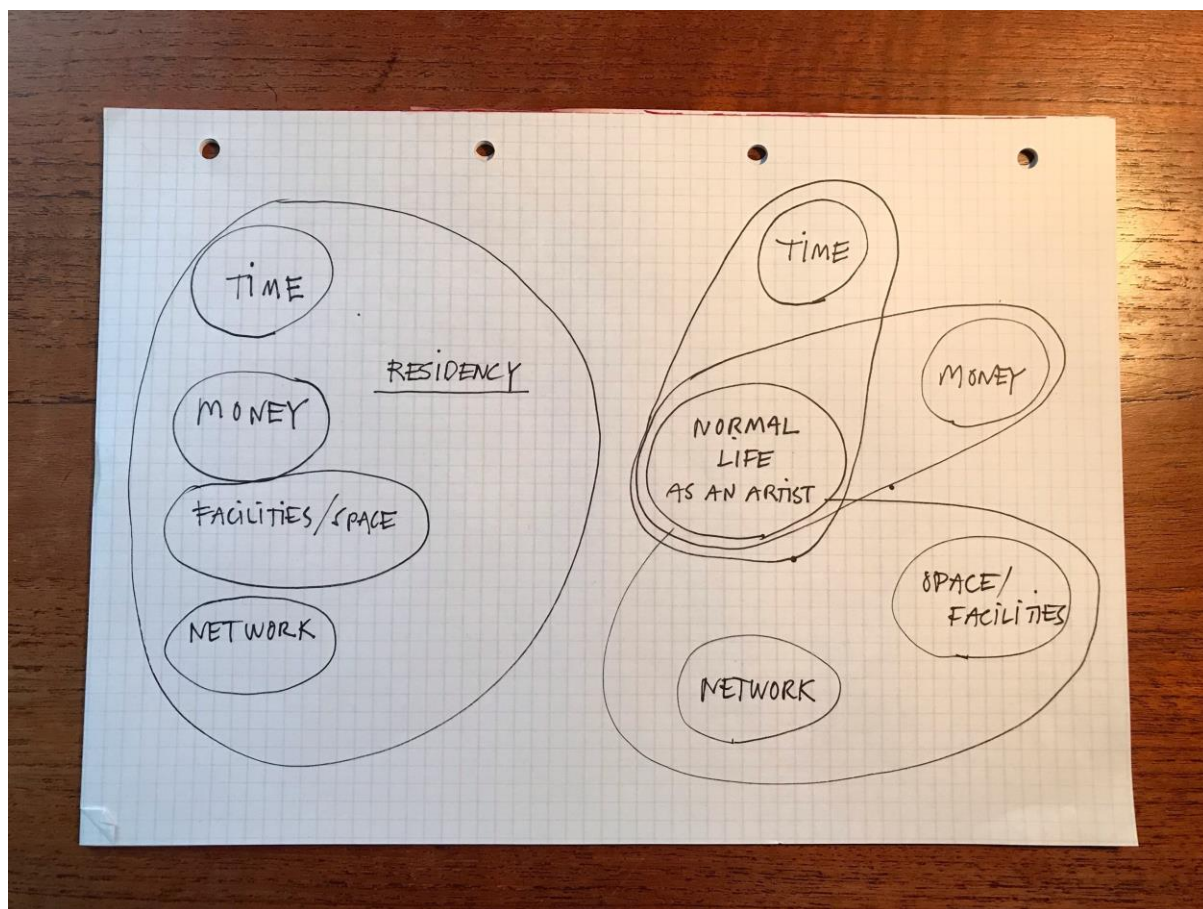 TIME
RESIDENCY
MONEY
FACILITIES/SPACE
NETWORK
TIME
MONEY
NORMAL
LIFE
AS AN ARTIST
SPACE/
FACILITIES
NETWORK